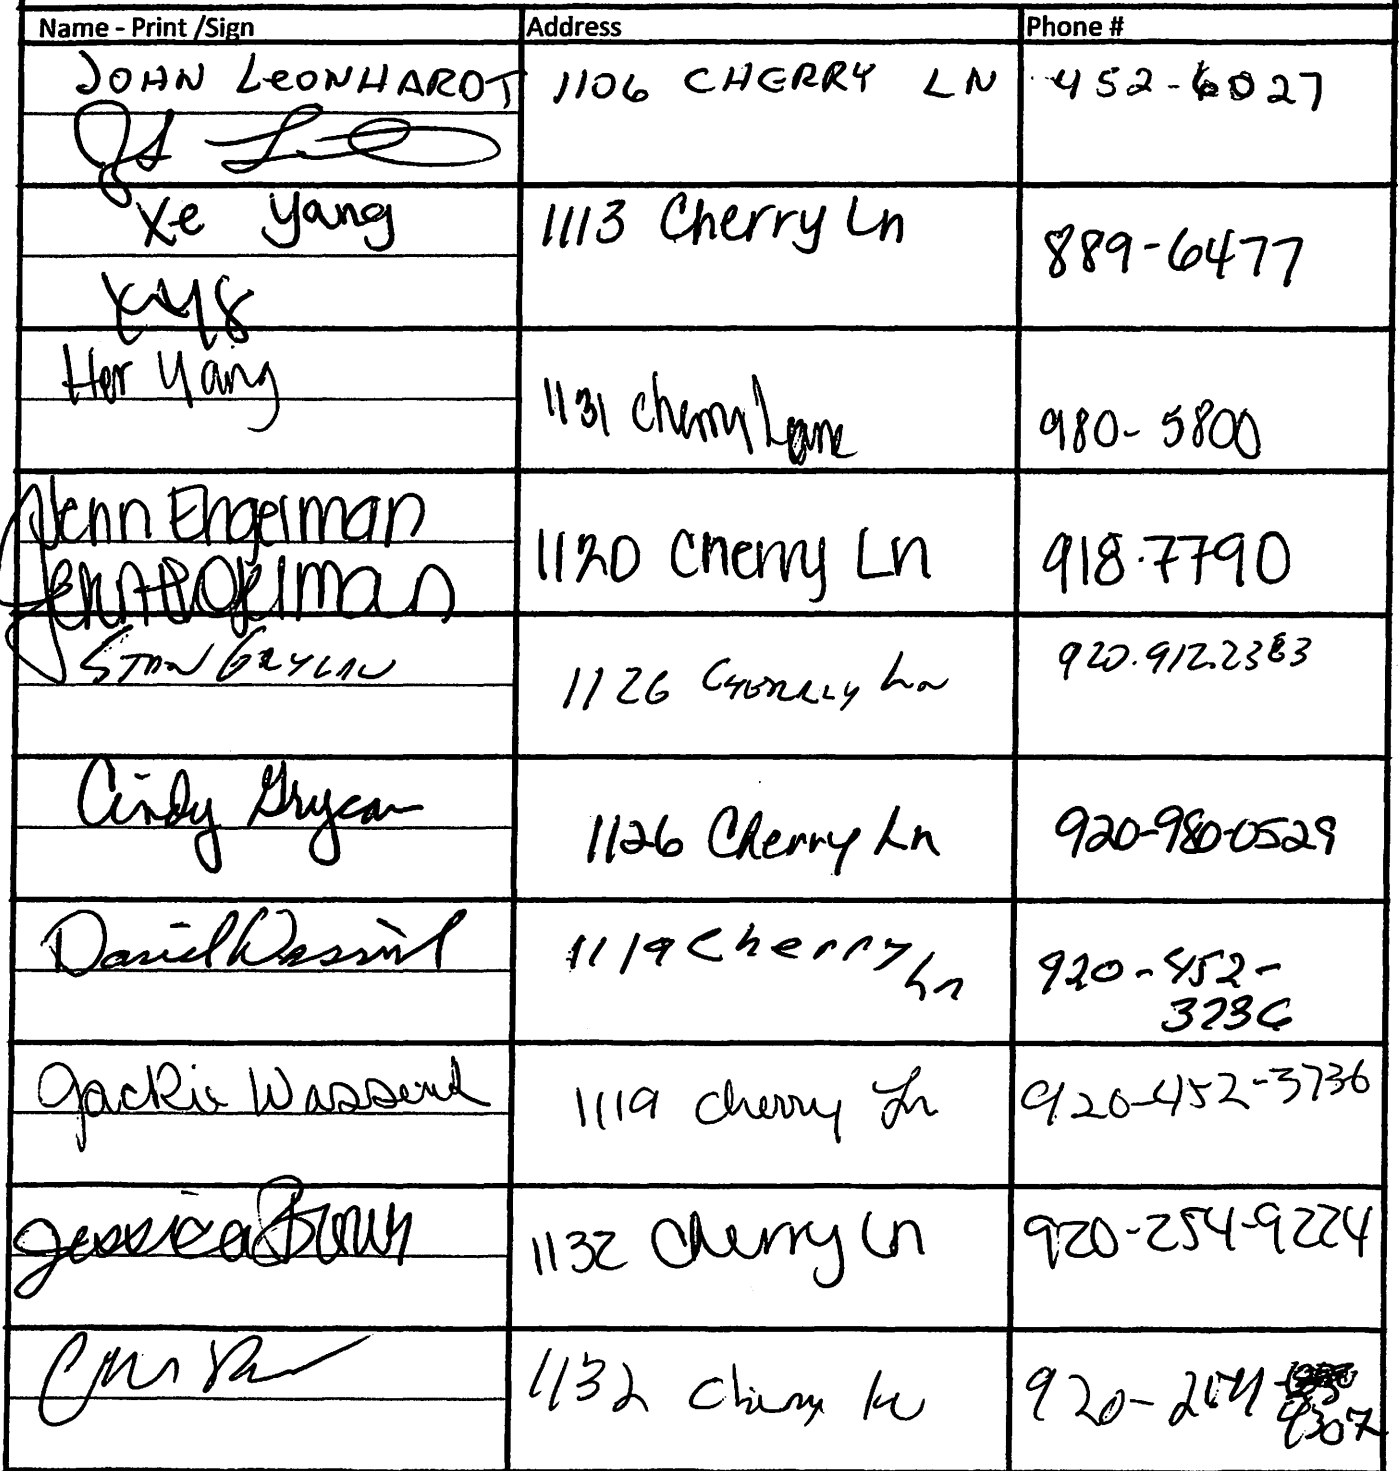 Name - Print /Sign Address Phone #
JOHN LEONHARDT 1106 CHERRY LN 452-6027
Xe Yang 1113 Cherry Ln 889-6477
Her Yang 1131 Cherry Lane 980-5800
Jenn Engelman 1120 Cherry Ln 918-7790
Jenn Engelman
STAN GRYCAN 1126 CHERRLY Ln 920.912.2383
Cindy Grycan 1126 Cherry Ln 920-980-0529
Daniel 1119 Cherry Ln 920-452-
3736
Jackie Wassend 1119 Cherry Ln 920-452-3736
Jessica Brown 1132 Cherry Ln 920-254-9224
1132 Cherry Ln 920-
4307